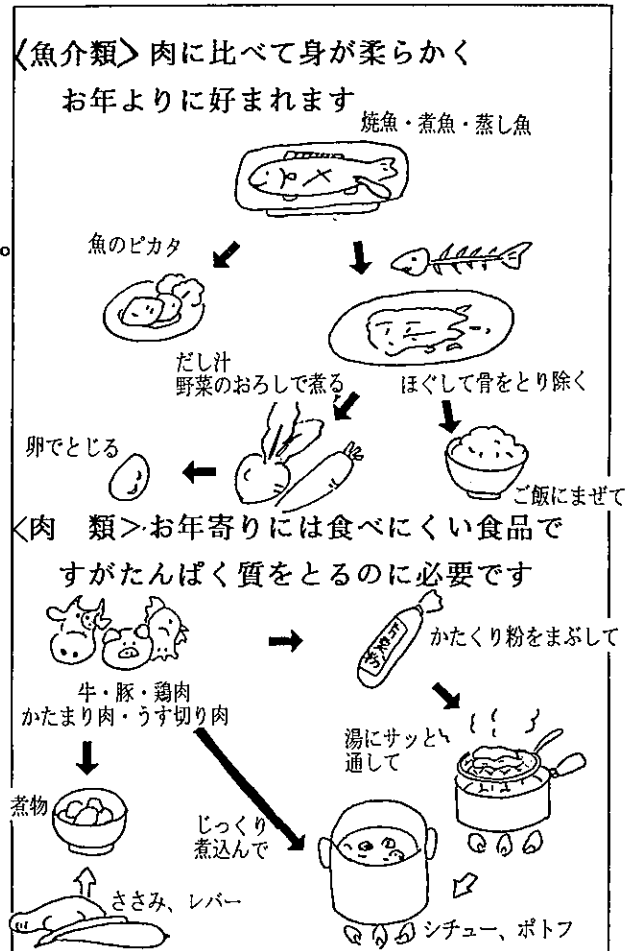 〈魚介類〉肉に比べて身が柔らかく
お年よりに好まれます
焼魚・煮魚・蒸し魚
魚のピカタ
だし汁
野菜のおろしで煮る
ほぐして骨をとり除く
卵でとじる
ご飯にまぜて
〈肉　類〉お年寄りには食べにくい食品で
すがたんぱく質をとるのに必要です
かたくり粉をまぶして
牛・豚・鶏肉
かたまり肉・うす切り肉
湯にサッと
通して
煮物
じっくり
煮込んで
ささみ、レバー
シチュー、ポトフ